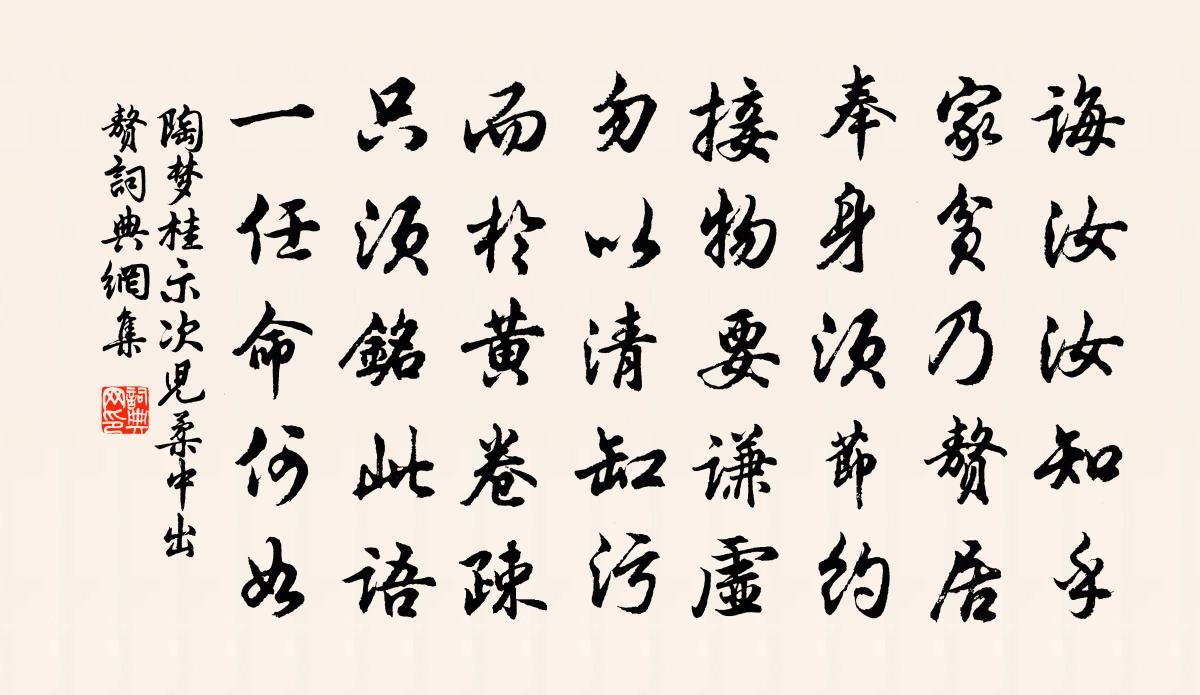 誨汝汝知乎
家貧乃贅居
奉身須節約
接物要謙虛
勿以清缸污
而於黄卷疎
只須銘此語
一任命何如
陶梦桂示次兒柔中出
贅詞典網集
詞典网印